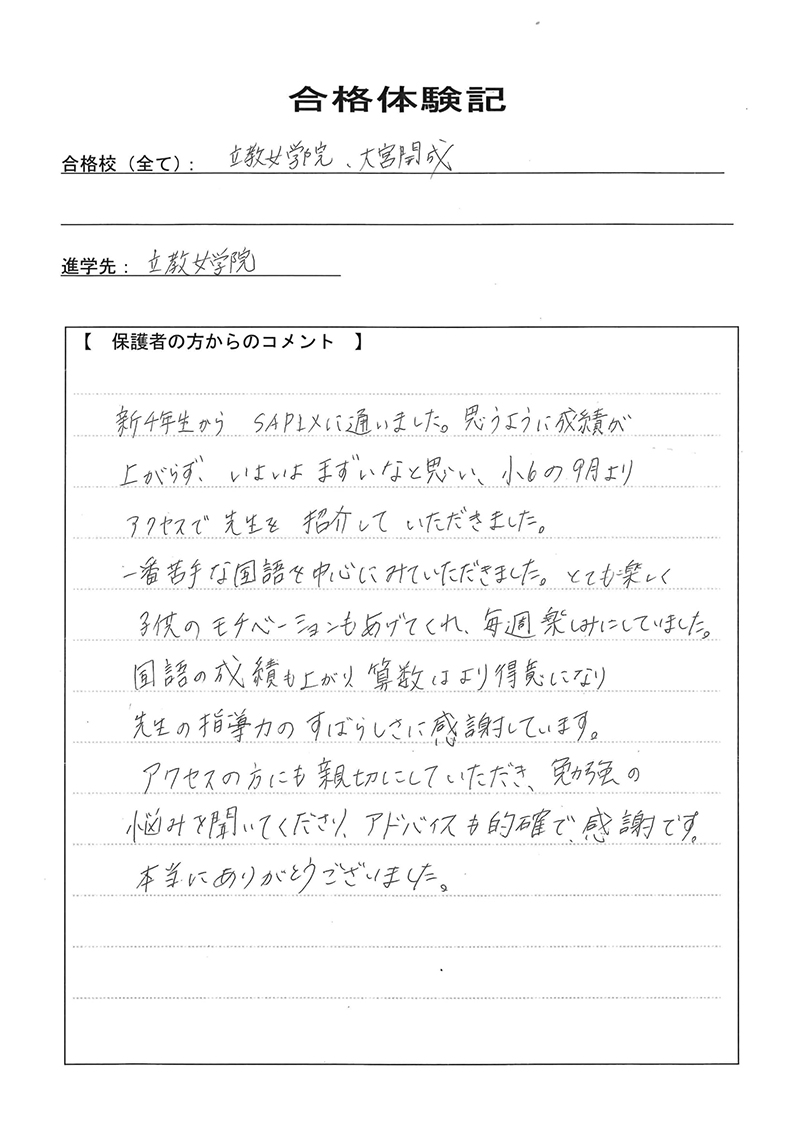 合格体験記
合格校（全て）： 立教女学院、大宮開成
進学先： 立教女学院
【 保護者の方からのコメント 】
新4年生から SAPIXに通いました。思うように成績が
上がらず、いよいよ まずいなと思い、小6の9月より
アクセスで先生を 紹介して いただきました。
一番苦手な国語を中心にみていただきました。とても楽しく
子供の モチベーションもあげてくれ、毎週 楽しみにしていました。
国語の成績も上がり 算数はより得意になり
先生の指導力の すばらしさに感謝しています。
アクセスの方にも親切にしていただき、勉強の
悩みを聞いてくださり、アドバイスも的確で、感謝です。
本当にありがとうございました。